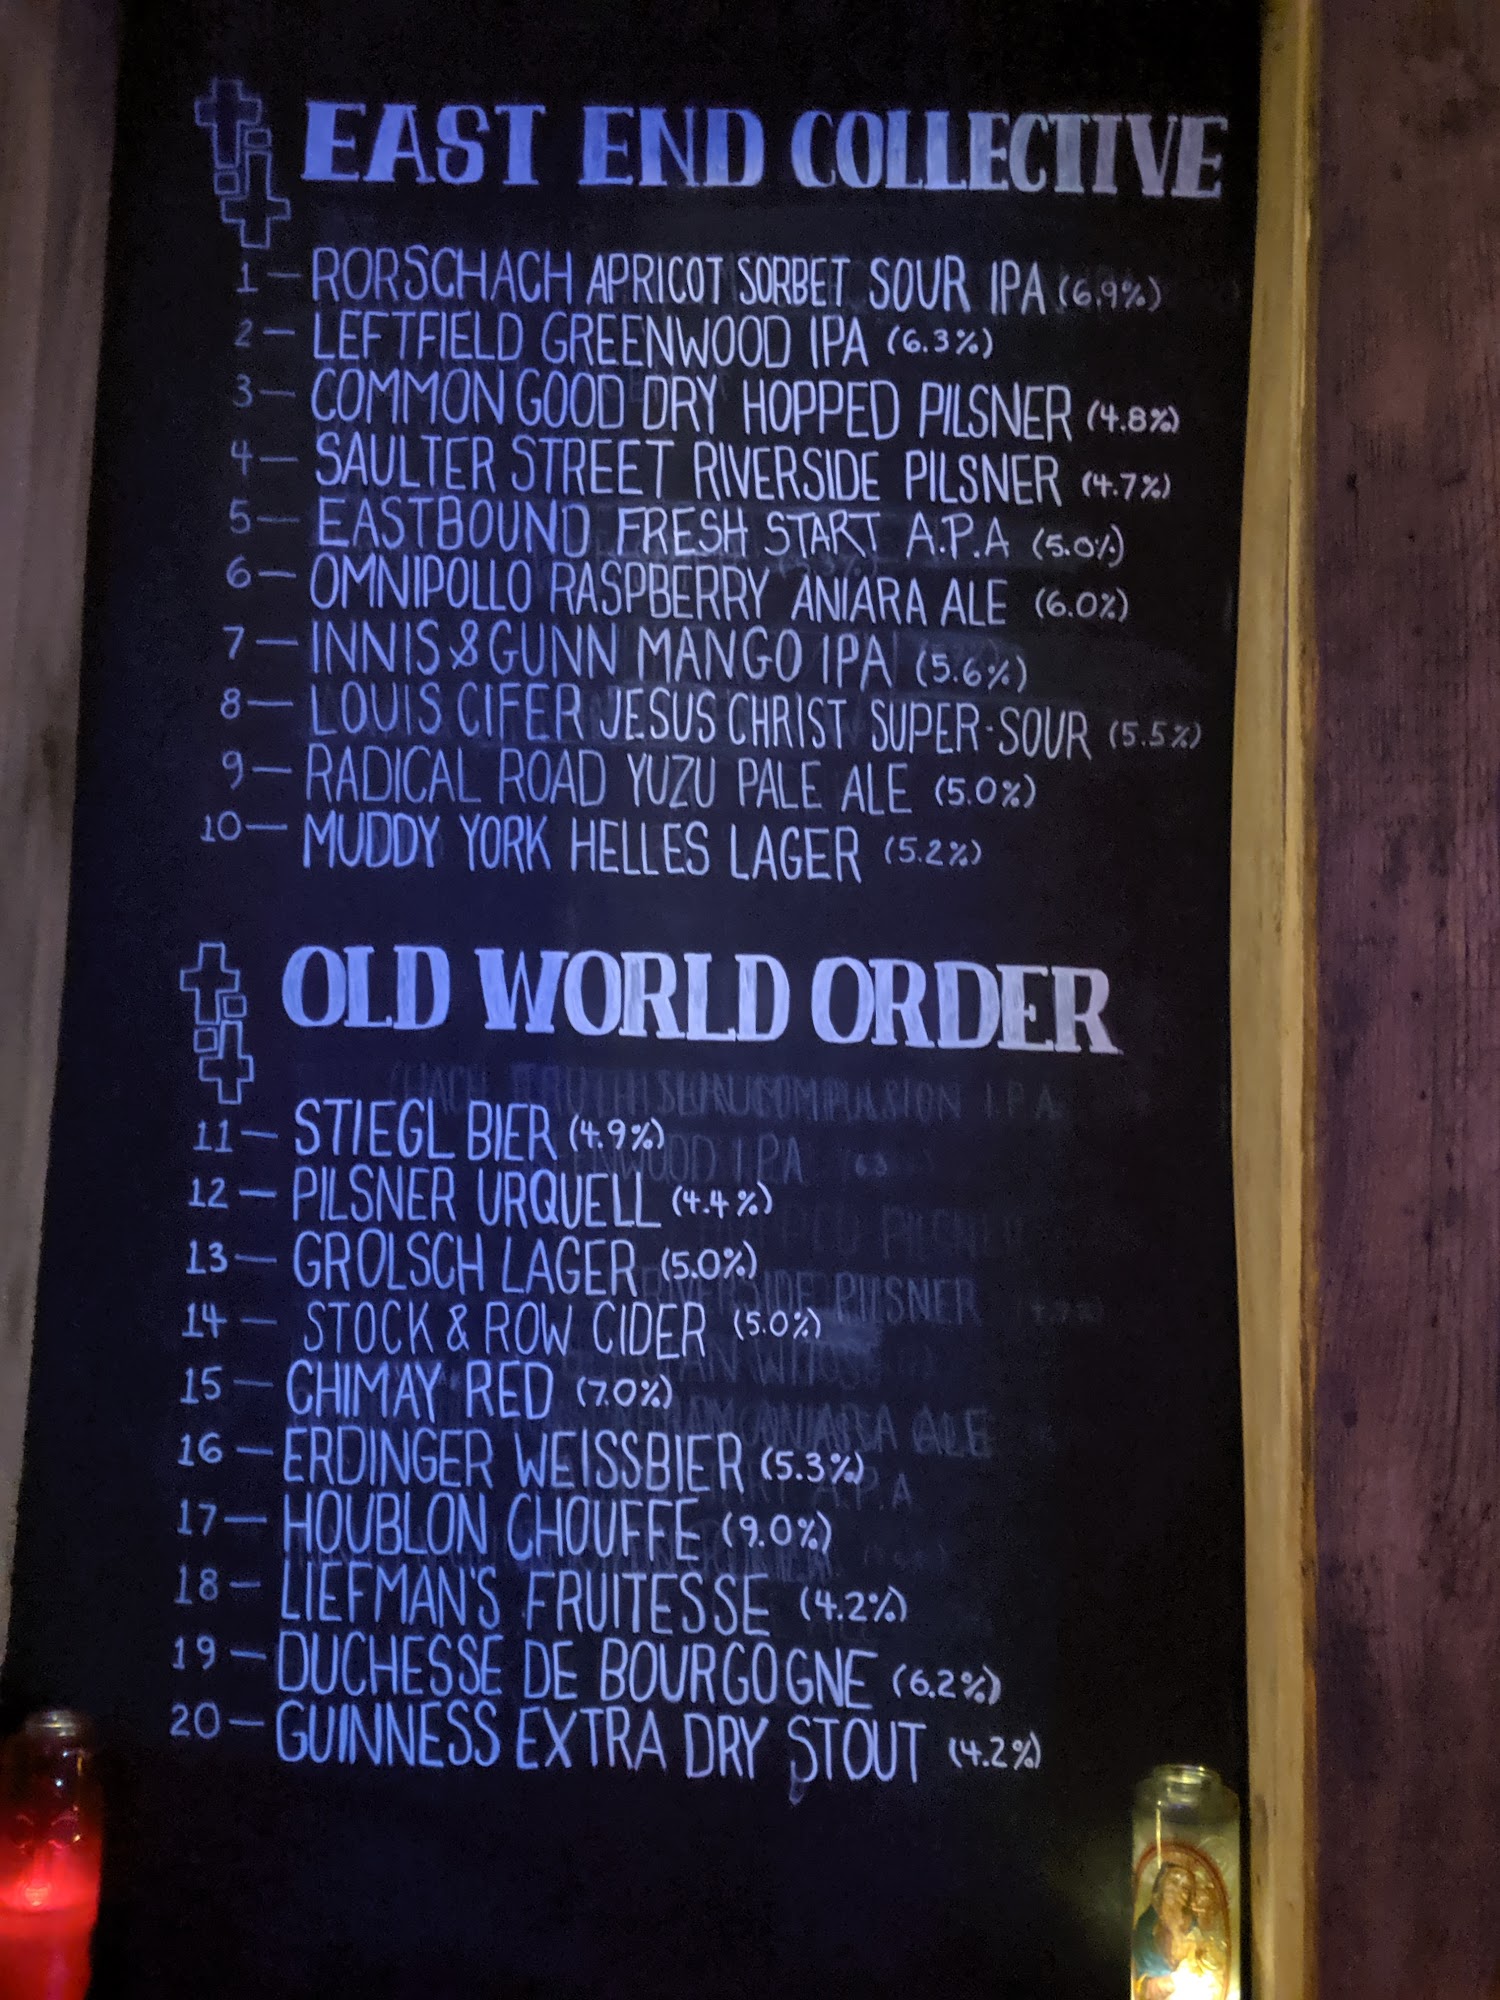 EAST END COLLECTIVE
1 — RORSCHACH APRICOT SORBET SOUR IPA (6.9%)
2 — LEFTFIELD GREENWOOD IPA (6.3%)
3 — COMMON GOOD DRY HOPPED PILSNER (4.8%)
4 — SAULTER STREET RIVERSIDE PILSNER (4.7%)
5 — EASTBOUND FRESH START A.P.A (5.0%)
6 — OMNIPOLLO RASPBERRY ANIARA ALE (6.0%)
7 — INNIS & GUNN MANGO IPA (5.6%)
8 — LOUIS CIFER JESUS CHRIST SUPER-SOUR (5.5%)
9 — RADICAL ROAD YUZU PALE ALE (5.0%)
10 — MUDDY YORK HELLES LAGER (5.2%)
OLD WORLD ORDER
11 — STIEGL BIER (4.9%)
12 — PILSNER URQUELL (4.4%)
13 — GROLSCH LAGER (5.0%)
14 — STOCK & ROW CIDER (5.0%)
15 — CHIMAY RED (7.0%)
16 — ERDINGER WEISSBIER (5.3%)
17 — HOUBLON CHOUFFE (9.0%)
18 — LIEFMAN'S FRUITESSE (4.2%)
19 — DUCHESSE DE BOURGOGNE (6.2%)
20 — GUINNESS EXTRA DRY STOUT (4.2%)